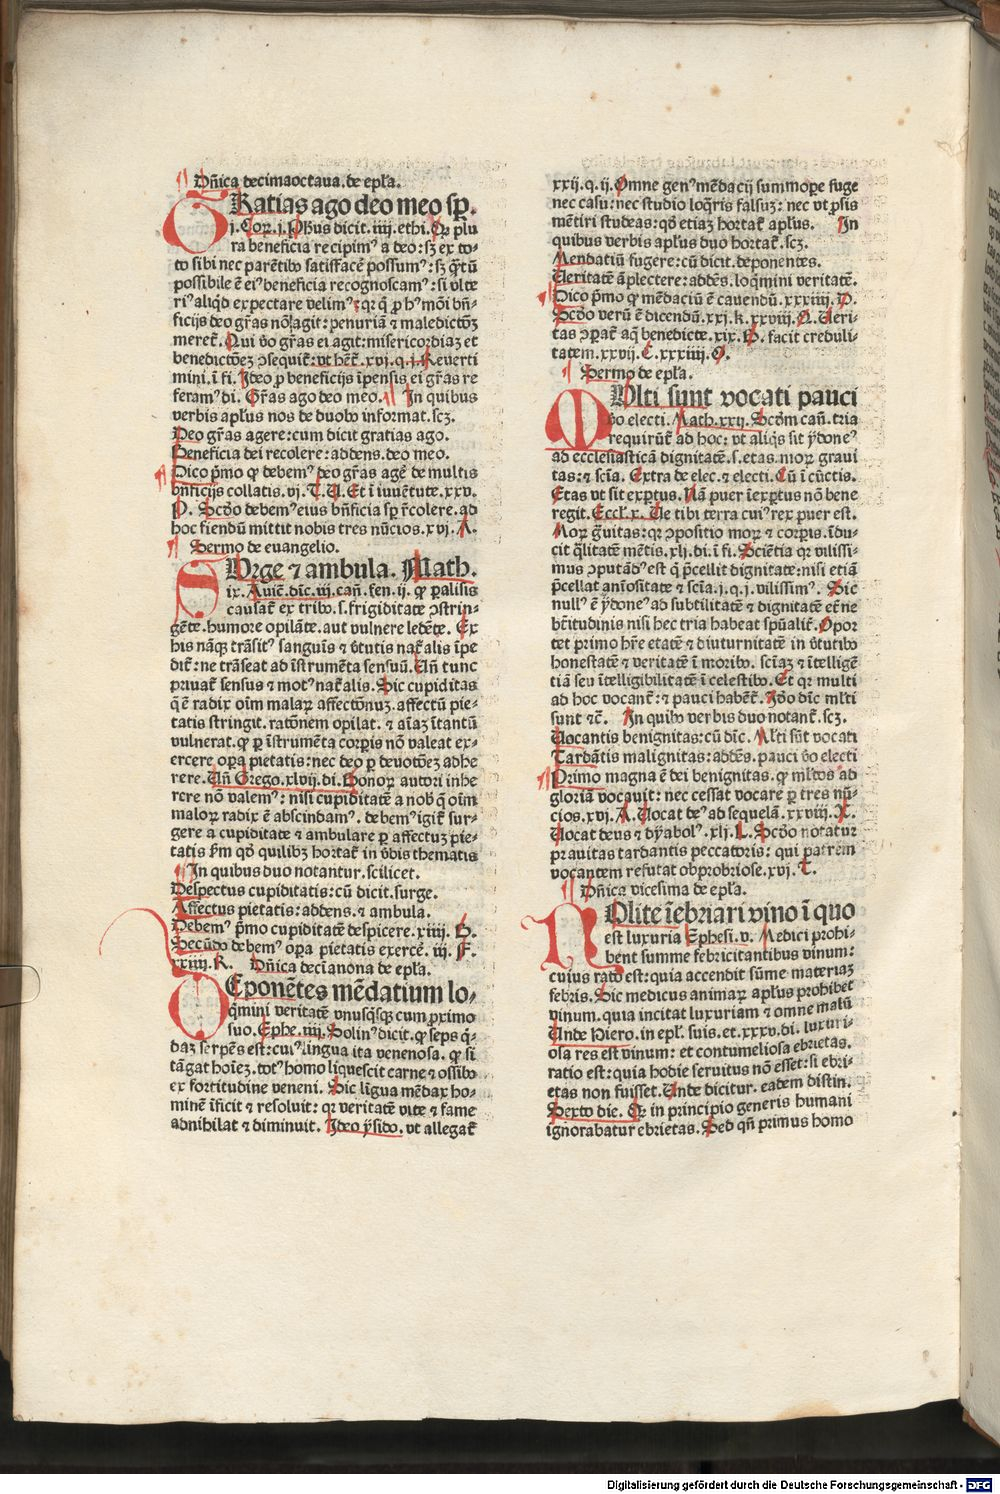 Dñica decimaoctaua. de epła.
GRatias ago deo meo sp̄.
j. Coꝝ. j. Phus dicit. iiij. ethi. Qꝛ plu
ra beneficia recipimꝰ a deo: sꝫ ex to-
to sibi nec parētibꝰ satisfacē possumꝰ: sꝫ q̄tū
possibile ē eiꝰ beneficia recognoscamꝰ: si vlte
riꝰ aliqd expectare velimꝰ: qꝛ q̄ ꝓ hꝰmōi bn̄-
ficijs deo gr̄as nō agit: penuriā ⁊ maledictōꝫ
meret᷑. Qui ṽo gr̄as ei agit: misericordiaꝫ et
benedictōeꝫ ꝯsequit᷑: vt het᷑. xvj. q. j. Reuerti
mini. ī fi. Ideo ꝓ beneficijs īpensis ei gr̄as re
feramꝰ di. Gr̄as ago deo meo. ¶ In quibus
verbis aplus nos de duobꝰ informat. scꝫ.
Deo gr̄as agere: cum dicit gratias ago.
Beneficia dei recolere: addens. deo meo.
Dico p̄mo ꝙ debemꝰ deo gr̄as agē de multis
bn̄ficijs collatis. vj. T. U. Et ī iuuētute. xxv.
P. Scd̄o debemꝰ eius bn̄ficia sp̄ r̄colere. ad
hoc fiendū mittit nobis tres nūcios. xvj. A.
¶ Sermo de euangelio.
SUrge ⁊ ambula. Math.
ix. Auiē. dic̄. iij. cañ. fen. ij. ꝙ palisis
causat᷑ ex tribꝰ. s. frigiditate ꝯstrin-
gēte. humore opilāte. aut vulnere ledēte. Ex
his nāqꝫ trāsitꝰ sanguīs ⁊ ṽtutis nat᷑alis īpe
dit᷑: ne trāseat ad īstrumēta sensuū. Uñ tunc
priuat᷑ sensus ⁊ motꝰ nat᷑alis. Sic cupiditas
q̄ ē radix oīm maloꝝ affectōnuꝫ. affectū pie-
tatis stringit. ratōnem opilat. ⁊ aīaꝫ ītantū
vulnerat. ꝙ ꝑ īstrumēta corꝑis nō valeat ex-
ercere oꝑa pietatis: nec deo ꝑ deuotōeꝫ adhe
rere. Uñ Grego. xlvij. di. Bonoꝝ autori inhe
rere nō valemꝰ: nisi cupiditatē a nobꝰ q̄ oīm
maloꝝ radix ē abscindamꝰ. debemꝰ igit᷑ sur-
gere a cupiditate ⁊ ambulare ꝑ affectus pie-
tatis ſm qd̄ quilibꝫ hortat᷑ in ṽbis thematis
¶ In quibus duo notantur. scilicet.
Despectus cupiditatis: cū dicit. surge.
Affectus pietatis: addens. ⁊ ambula.
Debemꝰ p̄mo cupiditatē despicere. xiiij. B.
Secūdo debemꝰ oꝑa pietatis exercē. iij. F.
xxiiij. K. Dñica decīanona de epła.
DEponētes mēdatium lo-
q̄mini veritatē vnusq̄sqꝫ cum ꝓximo
suo. Ephe. iiij. Solinꝰ dicit. ꝙ seps q̄-
daꝫ serpēs est: cuiꝰ lingua ita venenosa. ꝙ si
tāgat hoīeꝫ. totꝰ homo liquescit carne ⁊ ossibꝰ
ex fortitudine veneni. Sic līgua mēdax ho-
minē īficit ⁊ resoluit: qꝛ veritatē vite ⁊ fame
adnihilat ⁊ diminuit. Ideo ẏsido. vt allegat᷑
xxij. q. ij. Omne genꝰ mēdacij summoꝑe fuge
nec casu: nec studio loq̄ris falsuꝫ: nec vt ꝓsis
mētiri studeas: qd̄ etiaꝫ hortat᷑ aplus. In
quibus verbis aplus duo hortat᷑. scꝫ.
Mendatiū fugere: cū dicit. deponentes.
Ueritatē āplectere: addēs. loq̄mini veritatē.
Dico p̄mo ꝙ mēdaciū ē cauendū. xxxiiij. P.
Scd̄o verū ē dicendū. xxj. k. xxviij. N. Ueri-
tas ꝯꝑat᷑ aq̄ benedicte. xix. B. facit creduli-
tatem. xxvij. C. xxxiiij. O.
¶ Sermo de epła.
MUlti sunt vocati pauci
ṽo electi. Math. xxij. Scd̄m cañ. tria
requirūt᷑ ad hoc: vt aliq̄s sit ẏdoneꝰ
ad ecclesiasticā dignitatē. s. etas. moꝝ graui
tas: ⁊ scīa. Extra de elec. ⁊ electi. Cū ī cūctis.
Etas vt sit exꝑtus. Nā puer īexꝑtus nō bene
regit. Eccl᷑. x. Ue tibi terra cuiꝰ rex puer est.
Moꝝ g̃uitas: qꝛ ꝯpositio moꝝ ⁊ corꝑis. īdu-
cit q̄litatē mētis. xlj. di. ī fi. Sciētia qꝛ vilissi-
mus ꝯputādꝰ est q̄ p̄cellit dignitate: nisi etiā
p̄cellat aniositate ⁊ scīa. j. q. j. vilissimꝰ. Sic
nullꝰ ē ẏdoneꝰ ad subtilitatē ⁊ dignitatē et᷑ne
bt̄itudinis nisi hec tria habeat spūalit᷑. Opor
tet primo hr̄e etatē ⁊ diuturnitatē in ṽtutibꝰ
honestatē ⁊ veritatē ī moribꝰ. scīaꝫ ⁊ ītelligē
tiā seu ītelligibilitatē ī celestibꝰ. Et qꝛ multi
ad hoc vocant᷑: ⁊ pauci habēt᷑. Iō dic̄ mlti
sunt ⁊c̄. In quibꝰ verbis duo notant᷑. scꝫ.
Uocantis benignitas: cū dic̄. Mlti sūt vocati
Tardātis malignitas: addēs. pauci ṽo electi
Primo magna ē dei benignitas. ꝙ mltos ad
gloriā vocauit: nec cessat vocare ꝑ tres nū-
cios. xvj. A. Uocat deꝰ ad sequelā. xxviij. X.
Uocat deus ⁊ dẏabolꝰ. xlj. L. Scd̄o notatur
prauitas tardantis peccatoris: qui patrem
vocantem refutat obprobriose. xvj. T.
¶ Dñica vicesima de epła.
NOlite īebriari vino ī quo
est luxuria Ephesi. v. Medici prohi-
bent summe febricitantibus vinum:
cuius ratō est: quia accendit sūme materiaꝫ
febris. Sic medicus animaꝝ aplus prohibet
vinum. quia incitat luxuriam ⁊ omne malū
Unde Hiero. in epl᷑. suis. et. xxxv. di. luxuri-
osa res est vinum: et contumeliosa ebrietas.
ratio est: quia hodie seruitus nō esset: si ebri-
etas non fuisset. Unde dicitur. eadem distin.
Sexto die. Qꝛ in principio generis humani
ignorabatur ebrietas. Sed qn̄ primus homo
Digitalisierung gefördert durch die Deutsche Forschungsgemeinschaft - DFG